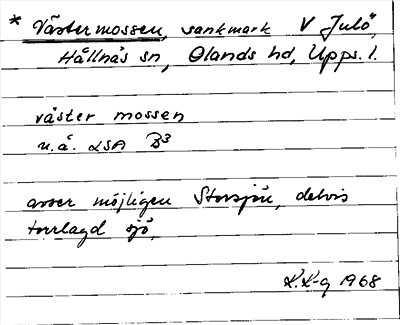 * Västermossen, sankmark V Julö,
Hållnäs sn, Olands hd, Upps. l.
väster mossen
u.å. LSA B3
avser möjligen Storsjön, delvis
torrlagd sjö,
K.K-g 1968